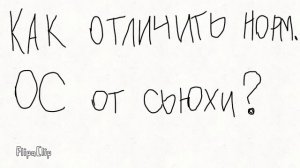 КАК ОТЛИЧИТЬ НОРМ.
ОС ОТ СЬЮХИ?
FlipaClip